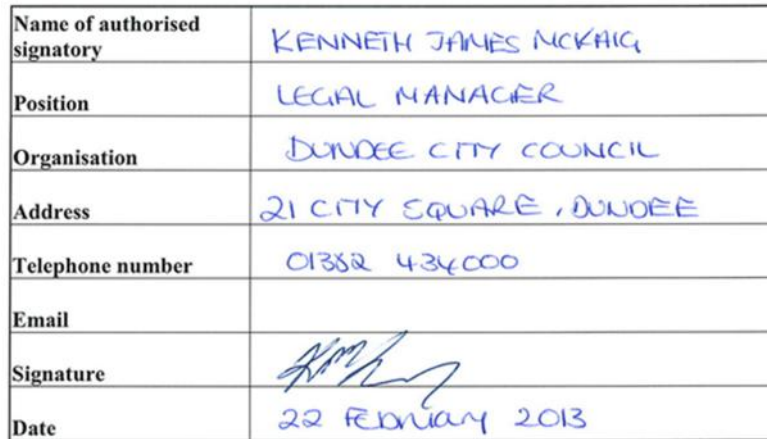 Name of authorised
signatory
KENNETH JAMES MCKAIG
Position
LEGAL MANAGER
Organisation
DUNDEE CITY COUNCIL
Address
21 CITY SQUARE, DUNDEE
Telephone number
01382 434000
Email
Signature
Date
22 February 2013